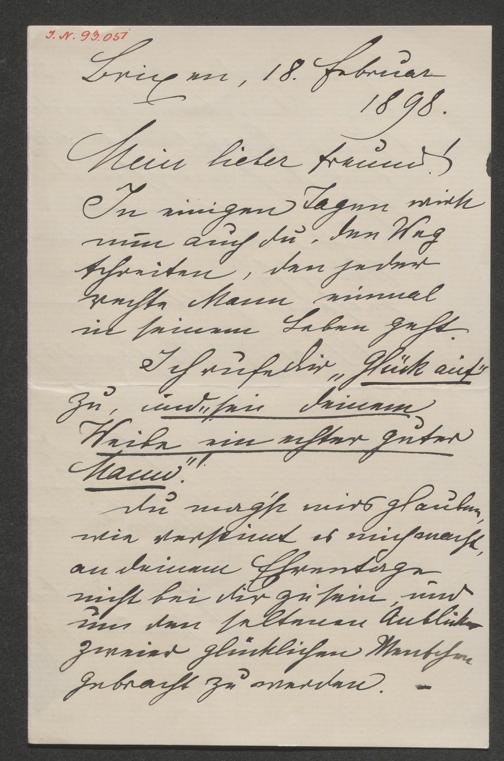 J. N. 93.051
Brixen, 18. Februar
1898.
Mein lieber Freund!
In einigen Tagen wirst
nun auch du, den Weg
schreiten, den jeder
rechte Mann einmal
in seinem Leben geht.
Ich rufe dir „Glück auf"
zu, und „sei deinem
Weibe ein echter guter
Mann"!
Du mag'st mirs glauben,
wie verstimt es mich macht,
an deinem Ehrentage
nicht bei dir zu sein und
um den seltenen Anblick
zweier glücklichen Menschen
gebracht zu werden. –